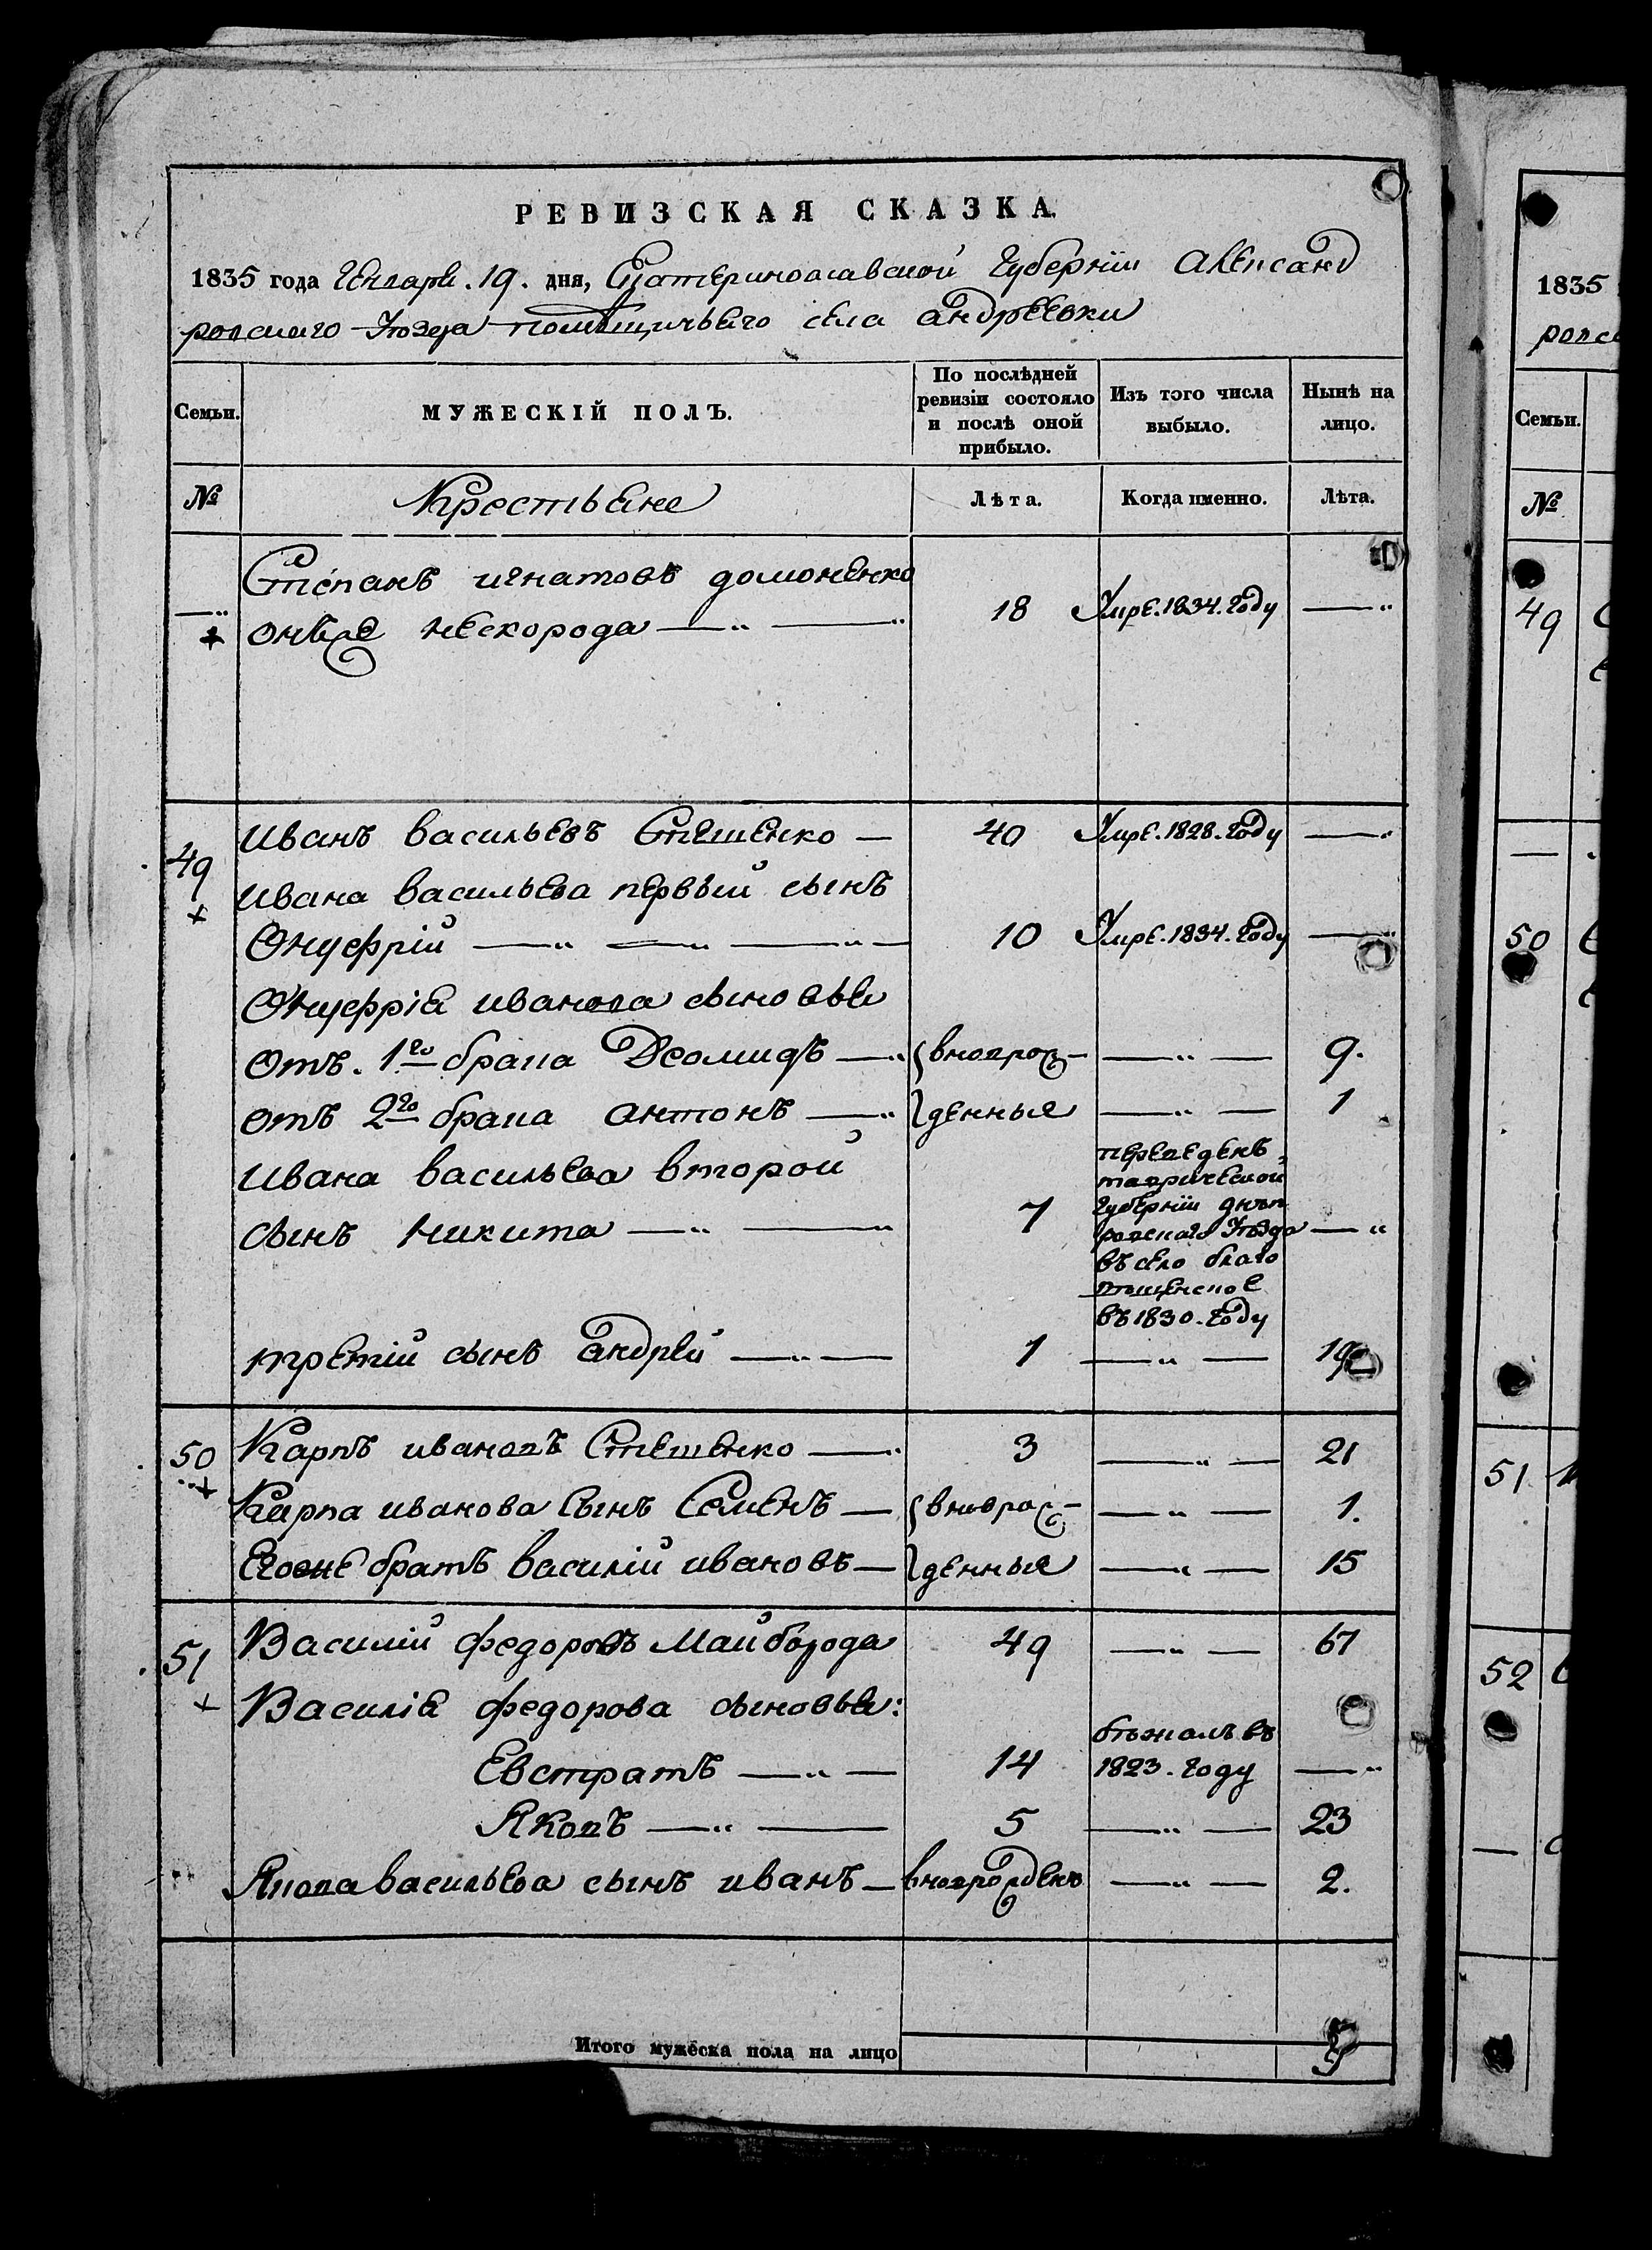 РЕВИЗСКАЯ СКАЗКА.
1835 года Генваря. 19. дня, Екатеринославской Губернiи Александ
ровскаго Уѣзда помѣщичьяго села Андреевки
Семьи.
МУЖЕСКIЙ ПОЛЪ.
По послѣдней ревизiи состояло и послѣ оной прибыло.
Изъ того числа выбыло.
Нынѣ на лицо.
№ Крестьяне Лѣта. Когда именно. Лѣта.
Степанъ игнатовъ домоненко
онже нескорода — " — " 18 Умре. 1834. году — "
49 Иванъ васильевъ Стешенко — 40 Умре. 1828. году — "
Ивана васильева первый сынъ
Онуфрiй — " — " — " — 10 Умре. 1834. году — "
Онуфрiя иванова сыновья
отъ. 1го брака Деомидъ — " вновьрож- — " — 9.
отъ 2го брака антонъ — " денные — " — 1
Ивана васильева второй
сынъ никита — " — " 7 переведенъ
таврической
Губернiи днеп
ровскаго Уѣзда — "
въ село благо
вещенское
въ 1830. году
третiй сынъ Андрей — " — 1 — " — 19
50 Карпъ ивановъ Стешенко — " 3 — " — 21
Карпа иванова Сынъ Семенъ — вноврож- — " — 1.
Егоже братъ василiй ивановъ — денные — " — 15
51 Василiй федоровъ Майборода 49 — " — 67
Василiя федорова сыновья:
Евстратъ — " — 14 бѣжалъ въ
1823. году — "
Яковъ — " — 5 — " — 23
Якова васильева сынъ иванъ — вноврожденъ — " — 2.
Итого мужеска пола на лицо
1835
ровс
Семьи.
№
49
50
51
52